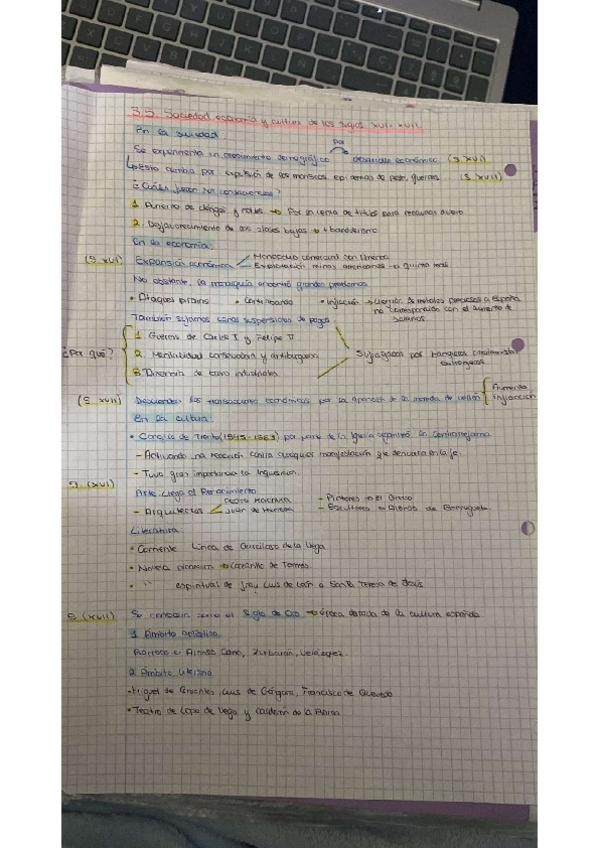 3.5. Sociedad economía y cultura de los siglos XVI-XVII
En la sociedad.
Se experimenta un crecimiento demográfico por desarrollo económico (S XVI)
Esto cambia por expulsión de los moriscos, epidemias de peste, guerras. (S XVII)
¿Cuáles fueron las consecuencias?
1. Aumento de clérigos y nobles → Por la venta de títulos para recaudar dinero
2. Desfavorecimiento de las clases bajas → + bandolerismo
En la economía:
(S XVI) Expansión económica
Monopolio comercial con América
Explotación minas americanas → quinto real
No obstante, la monarquía encontró grandes problemas
• Ataques piratas • Contrabando • Inflacción → llegada de metales preciosos a España
no correspondía con el aumento de salarios.
También sufrimos varias suspensiones de pagos
¿Por qué?
1. Guerras de Carlos I y Felipe II
2. Mentalidad conservadora y antiburguesa
3. Ausencia de tejido industrial
Subyugados por banqueros extranjeros
(S XVII) Descienden las transacciones económicas por la aparición de la moneda de vellón
inflacción
En la cultura:
• Concilio de Trento (1545-1563) por parte de la Iglesia organizó la Contrarreforma
- Activando una reacción contra cualquier manifestación que se desviara en la fe.
- Tuvo gran importancia la Inquisición.
S (XVI)
Arte: Llega el Renacimiento
- Arquitectos
Pedro Machuca
Juan de Herrera
- Pintores → El Greco
- Escultores → Alonso de Berruguete
Literatura
• Corriente Lírica de Garcilaso de la Vega
• Novela picaresca → Lazarillo de Tormes
• " espiritual de fray Luis de León o Santa Teresa de Jesús
S (XVII) Se conocen como el Siglo de Oro → época dorada de la cultura española
1. Ámbito artístico
Barroco: Alonso Cano, Zurbarán, Velázquez.
2. Ámbito literario
- Miguel de Cervantes, Luis de Góngora, Francisco de Quevedo
• Teatro de Lope de Vega y Calderón de la Barca